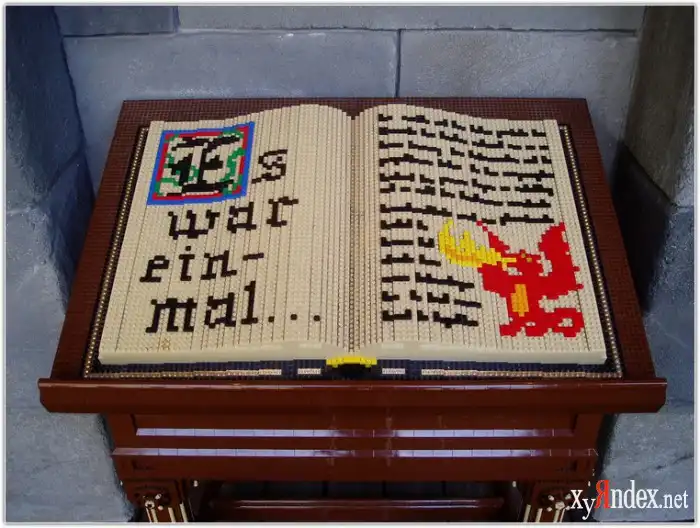 Es
war
ein-
mal...
xyЯndex.net